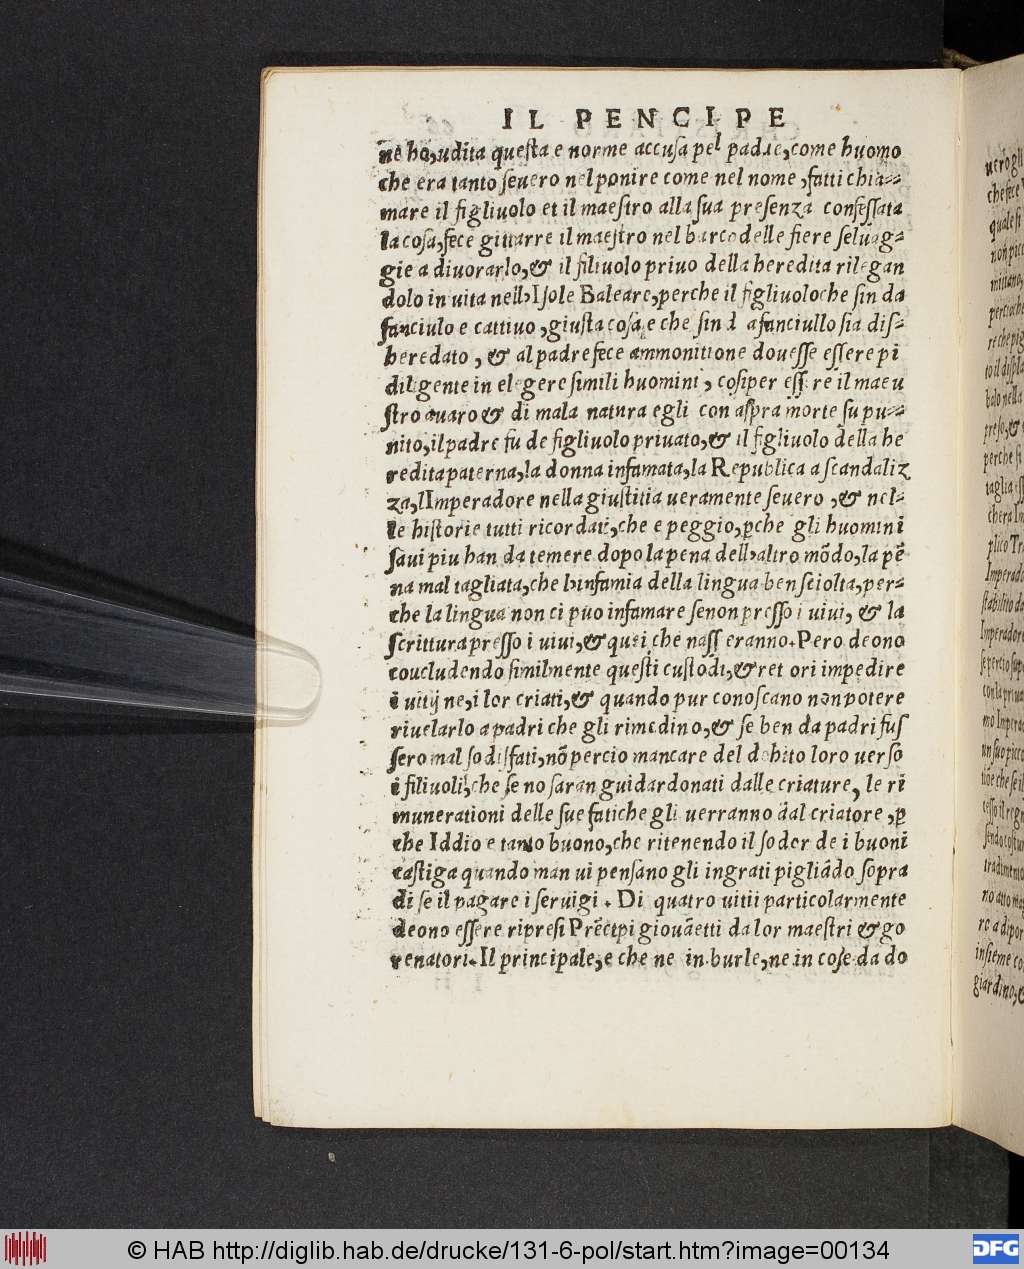 IL PENCIPE
ne ho, udita questa e norme accusa pel padre, come huomo
che era tanto seuero nel ponire come nel nome, fatti chia-
mare il figliuolo et il maestro alla sua presenza confessata
la cosa, fece gittarre il maestro nel barco delle fiere seluag-
gie a diuorarlo, & il filiuolo priuo della heredita rilegan
dolo in uita nell'Isole Baleare, perche il figliuolo che sin da
fanciulo e cattiuo, giusta cosa e che sin d a fanciullo sia dis-
heredato, & al padre fece ammonitione douesse essere pi
diligente in elegere simili huomini, cosi per essere il mae u
stro auaro & di mala natura egli con aspra morte su pu-
nito, il padre fu de figliuolo priuato, & il figliuolo della he
redita paterna, la donna infamata, la Republica ascandaliz
za, l Imperadore nella giustitia ueramente seuero, & nel-
le historie tutti ricordati, che e peggio, ꝑche gli huomini
saui piu han da temere dopo la pena dell'altro mõdo, la pẽ
na mal tagliata, che l'infamia della lingua ben sciolta, per-
che la lingua non ci puo infamare se non presso i uiui, & la
scrittura presso i uiui, & quei che nasseranno. Pero deono
coucludendo similmente questi custodi, & ret ori impedire
i uitij ne, i lor criati, & quando pur conoscano non potere
riuelarlo a padri che gli rimedino, & se ben da padri fus
sero mal sodisfati, nõ percio mancare del debito loro uerso
i filiuoli, che se no saran guidardonati dalle criature, le ri
munerationi delle sue fatiche gli uerranno dal criatore, ꝑ
che Iddio e tanto buono, che ritenendo il soder de i buoni
castiga quando man ui pensano gli ingrati pigliãdo sopra
di se il pagare i seruigi. Di quatro uitii particolarmente
deono essere ripresi Prẽcipi giouãetti da lor maestri & go
renatori. Il principale, e che ne in burle, ne in cose da do
© HAB http://diglib.hab.de/drucke/131-6-pol/start.htm?image=00134
DFG